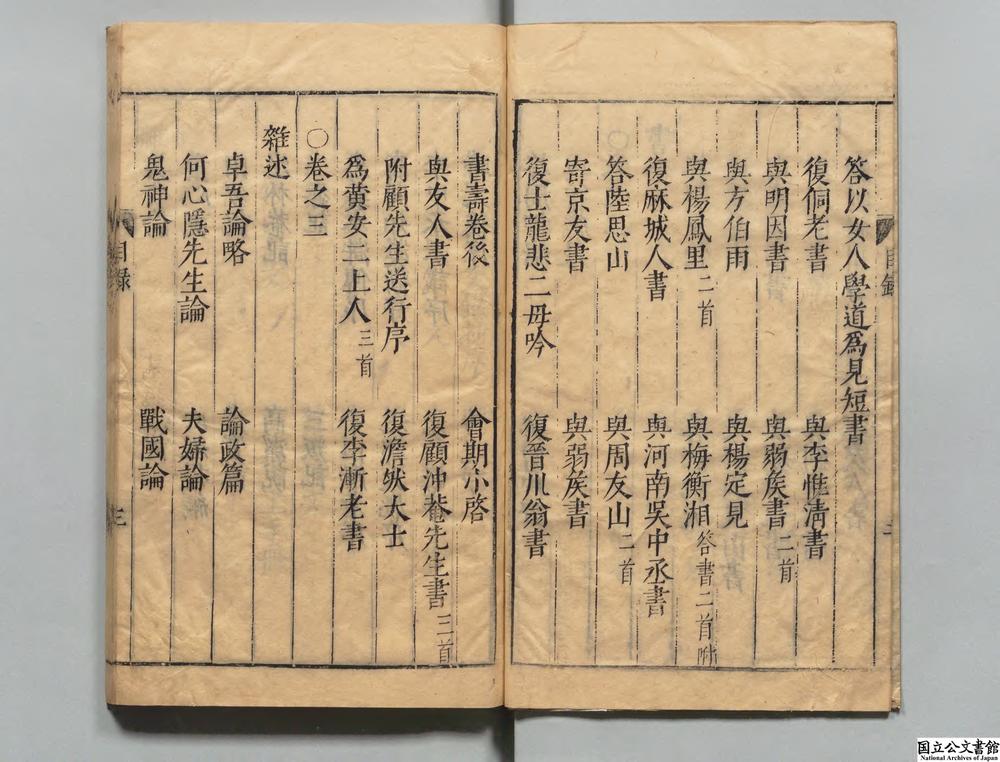 答以女人學道爲見短書
復侗老書　與李惟清書
與明因書　與弱矦書二首
與方伯雨　與楊定見
與楊鳳里二首　與梅衡湘答書二首附
復麻城人書　與河南吳中丞書
〇答陸思山　與周友山二首
寄京友書　與弱矦書
復士龍悲二母吟　復晉川翁書
目錄
二
書壽卷後　會期小啓
與友人書　復顧沖菴先生書三首
附顧先生送行序　復澹然大士
爲黄安二上人三首　復李漸老書
〇卷之三
雜述
卓吾論略　論政篇
何心隱先生論　夫婦論
鬼神論　戰國論
目錄
三
国立公文書館
National Archives of Japan